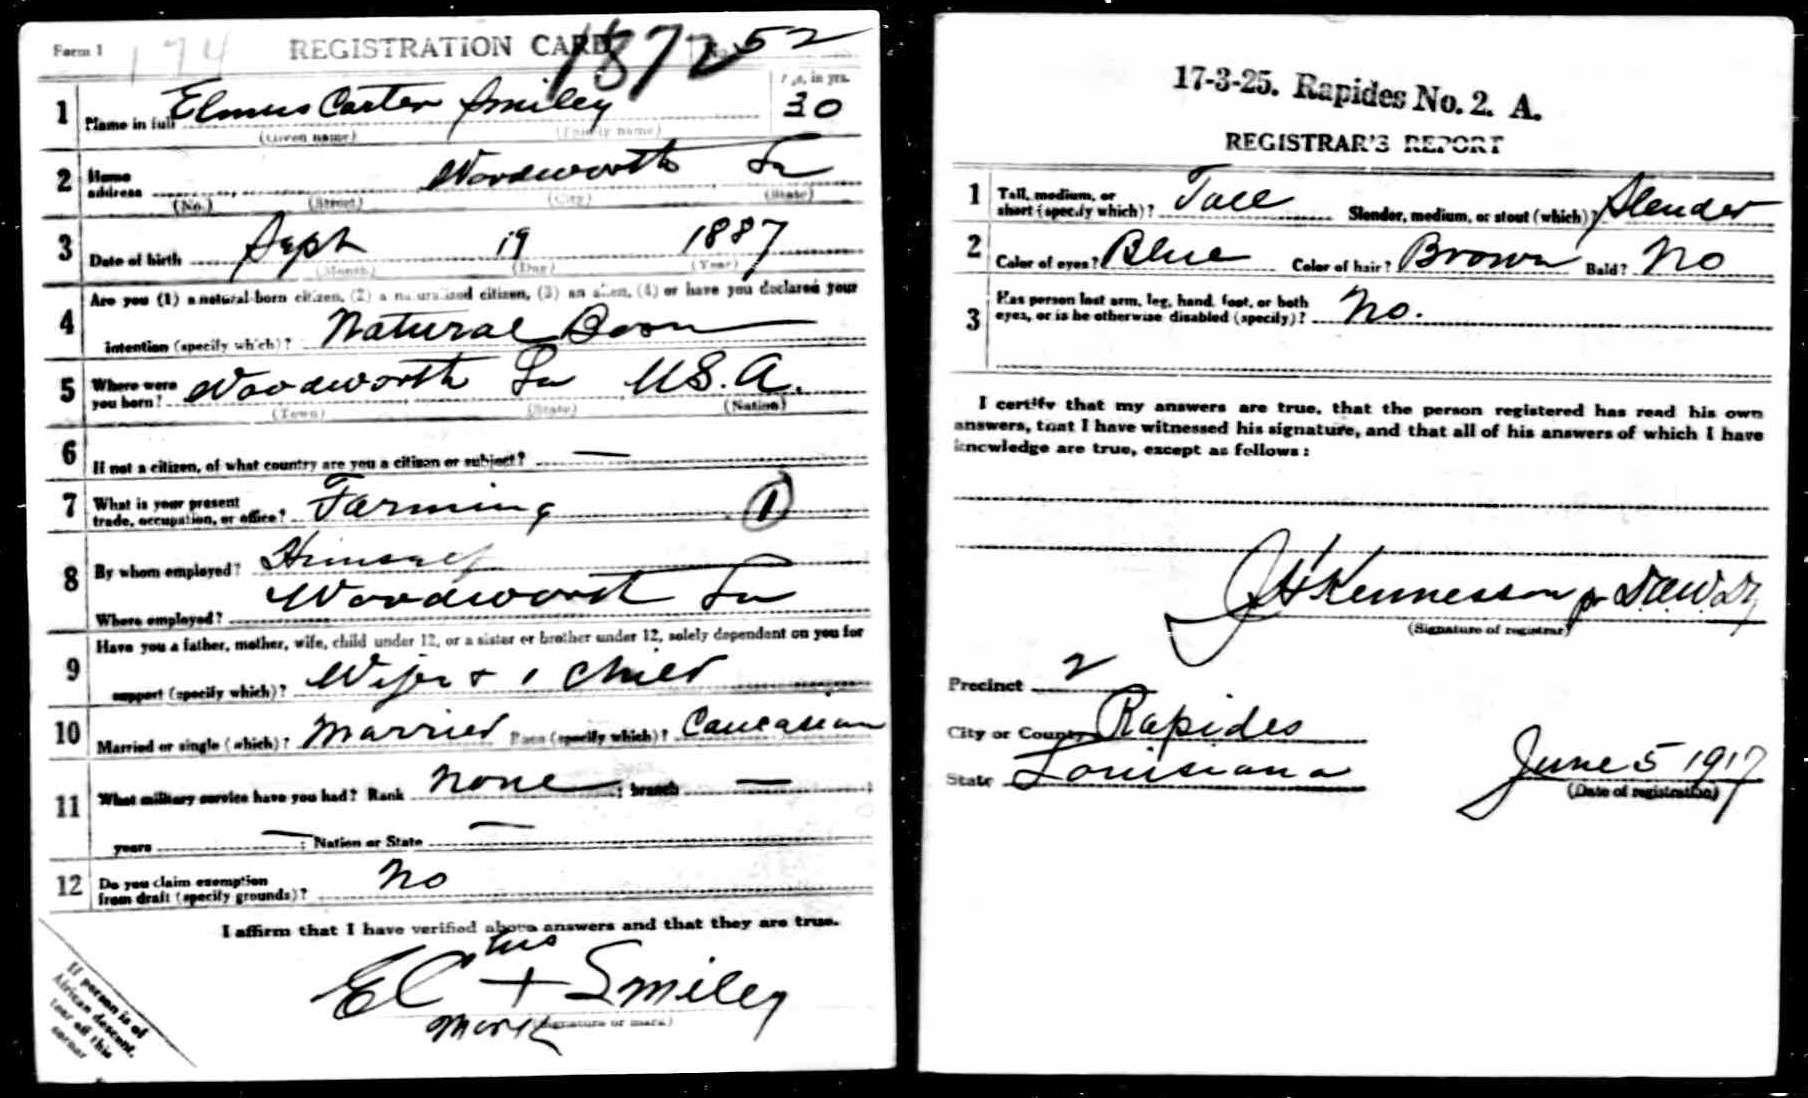 Form 1 174 REGISTRATION CARD 1872 No. 52
1 Name in full Elmus Carter Smiley Age, in yrs. 30
(Given name) (Family name)
2 Home address Woodworth La
(No.) (Street) (City) (State)
3 Date of birth Sept 19 1887
(Month) (Day) (Year)
4 Are you (1) a natural-born citizen, (2) a naturalized citizen, (3) an alien, (4) or have you declared your
intention (specify which)? Natural Born
5 Where were you born? Woodworth La U.S.A.
(Town) (State) (Nation)
6 If not a citizen, of what country are you a citizen or subject? —
7 What is your present trade, occupation, or office? Farming 1
8 By whom employed? Himself
Where employed? Woodworth La
9 Have you a father, mother, wife, child under 12, or a sister or brother under 12, solely dependent on you for
support (specify which)? Wife + 1 child
10 Married or single (which)? Married Race (specify which)? Caucasian
11 What military service have you had? Rank None ; branch —
years — ; Nation or State —
12 Do you claim exemption from draft (specify grounds)? No
I affirm that I have verified above answers and that they are true.
his
E C + Smiley
mark (Signature or mark)
If person is of
African descent,
tear off this
corner
17-3-25. Rapides No. 2. A.
REGISTRAR'S REPORT
1 Tall, medium, or short (specify which)? Tall Slender, medium, or stout (which)? Slender
2 Color of eyes? Blue Color of hair? Brown Bald? No
3 Has person lost arm, leg, hand, foot, or both
eyes, or is he otherwise disabled (specify)? No.
I certify that my answers are true, that the person registered has read his own
answers, that I have witnessed his signature, and that all of his answers of which I have
knowledge are true, except as follows:
J H Kennesson pr
(Signature of registrar)
Precinct 2
City or County Rapides
State Louisiana June 5 1917
(Date of registration)